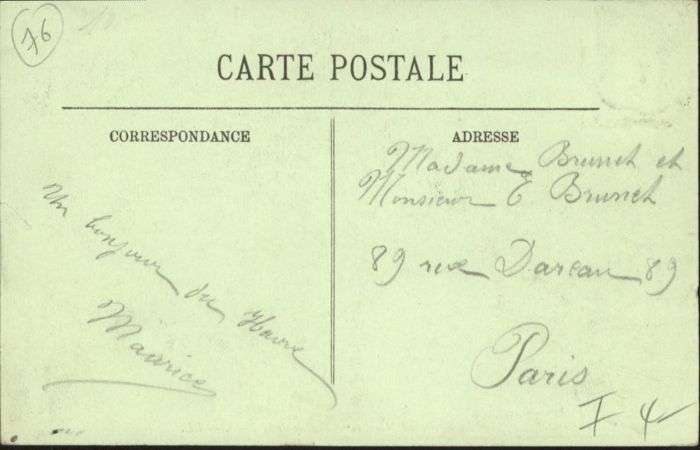 76
CARTE POSTALE
CORRESPONDANCE
Un bonjour du Havre
Maurice
ADRESSE
Madame Brunet et
Monsieur E Brunet
89 rue Dareau 89
Paris